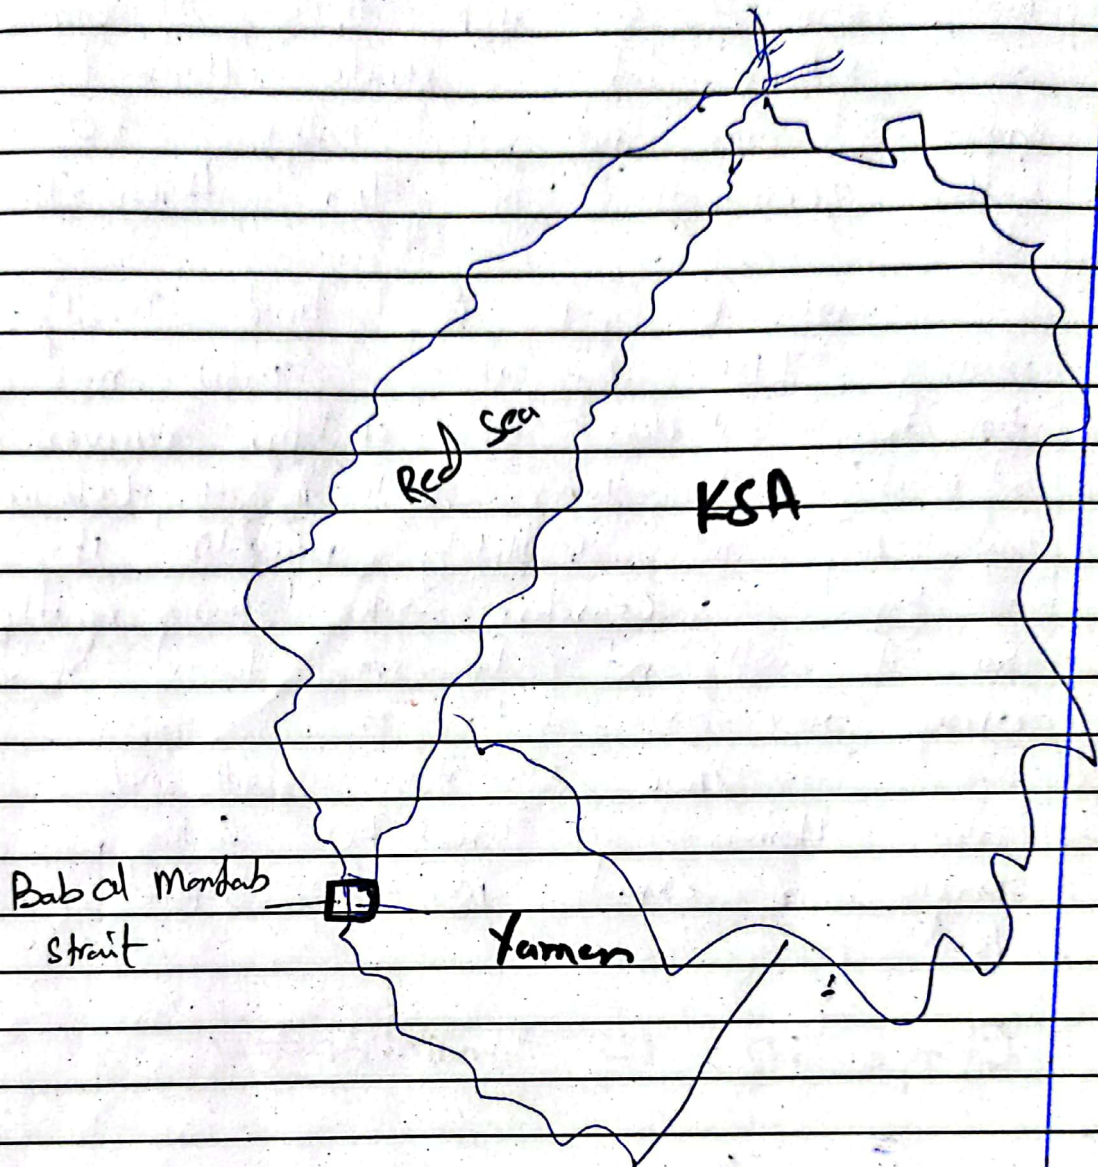 Red Sea
KSA
Bab al Mandab
strait
Yamen
!